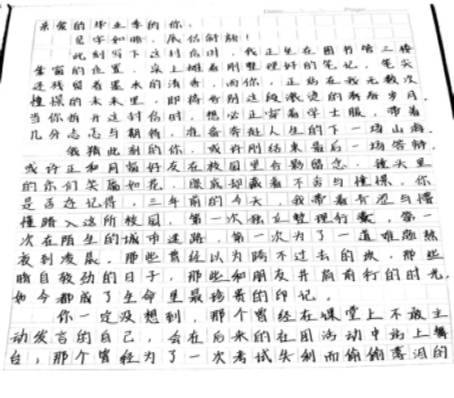 亲爱的毕业季的你:
见字如晤,展信舒颜!
此刻写下这封信时,我正坐在图书馆三楼
靠窗的位置,桌上摊着刚整理好的笔记,笔尖
还残留着墨水的清香,而你,正站在我无数次
憧憬的未来里,即将告别这段滚烫的青春岁月。
当你拆开这封信时,想必正穿着学士服,带着
几分忐忑与期待,准备奔赴人生的下一场山海。
我猜此刻的你,或许刚结束最后一场答辩,
或许正和同窗好友在校园里合影留念,镜头里
的你们笑靥如花,眼底却藏着不舍与憧憬。你
是否还记得,三年前的今天,我带着青涩与懵
懂踏入这所校园,第一次独立整理行囊,第一
次在陌生的城市迷路,第一次为了一道难题熬
夜到凌晨。那些曾经以为跨不过去的坎,那些
暗自较劲的日子,那些和朋友并肩前行的时光,
如今都成了生命里最珍贵的印记。
你一定没想到,那个曾经在课堂上不敢主
动发言的自己,会在后来的社团活动中站上舞
台;那个曾经为了一次考试失利而偷偷落泪的